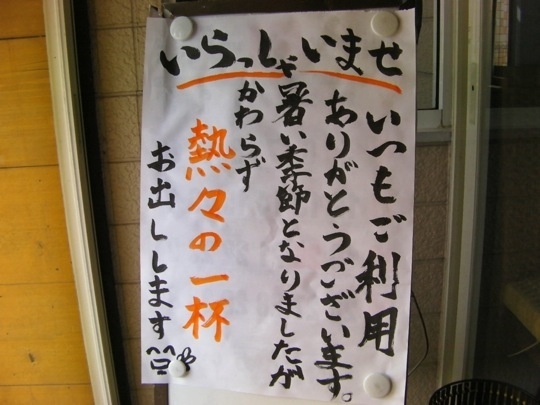 いらっしゃいませ
いつもご利用
ありがとうございます。
暑い季節となりましたが
かわらず
熱々の一杯
お出しします